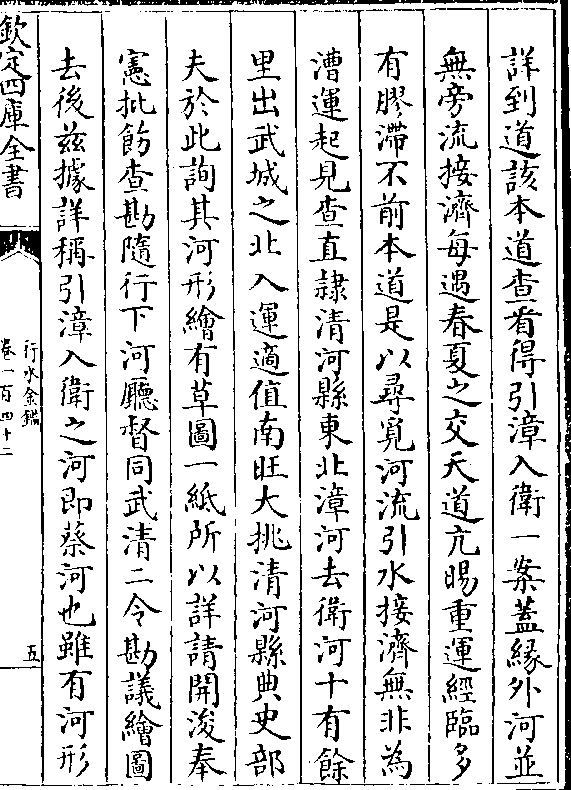 詳到道該本道查看得引漳入衛一案蓋緣外河並
無旁流接濟每遇春夏之交天道亢暘重運經臨多
有膠滯不前本道是以尋覓河流引水接濟無非為
漕運起見查直隸清河縣東北漳河去衛河十有餘
里出武城之北入運適值南旺大挑清河縣典史部
夫於此詢其河形繪有草圖一紙所以詳請開浚奉
憲批飭查勘隨行下河廳督同武清二令勘議繪圖
去後兹據詳稱引漳入衛之河即蔡河也雖有河形
欽定四庫全書
行水金鑑
卷一百四十二
五